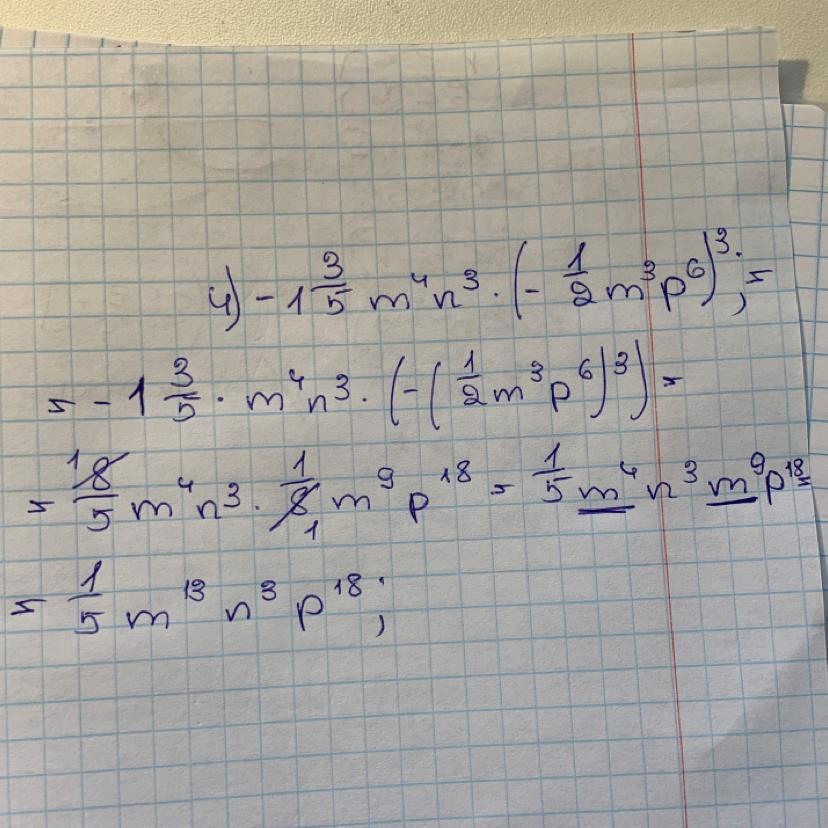 4) -1 3/5 m⁴n³ · (- 1/2 m³p⁶)³; =
= -1 3/5 · m⁴n³ · (-(1/2 m³p⁶)³) =
= 8/5 m⁴n³ · 1/8 m⁹p¹⁸ = 1/5 m⁴n³m⁹p¹⁸ =
= 1/5 m¹³n³p¹⁸;